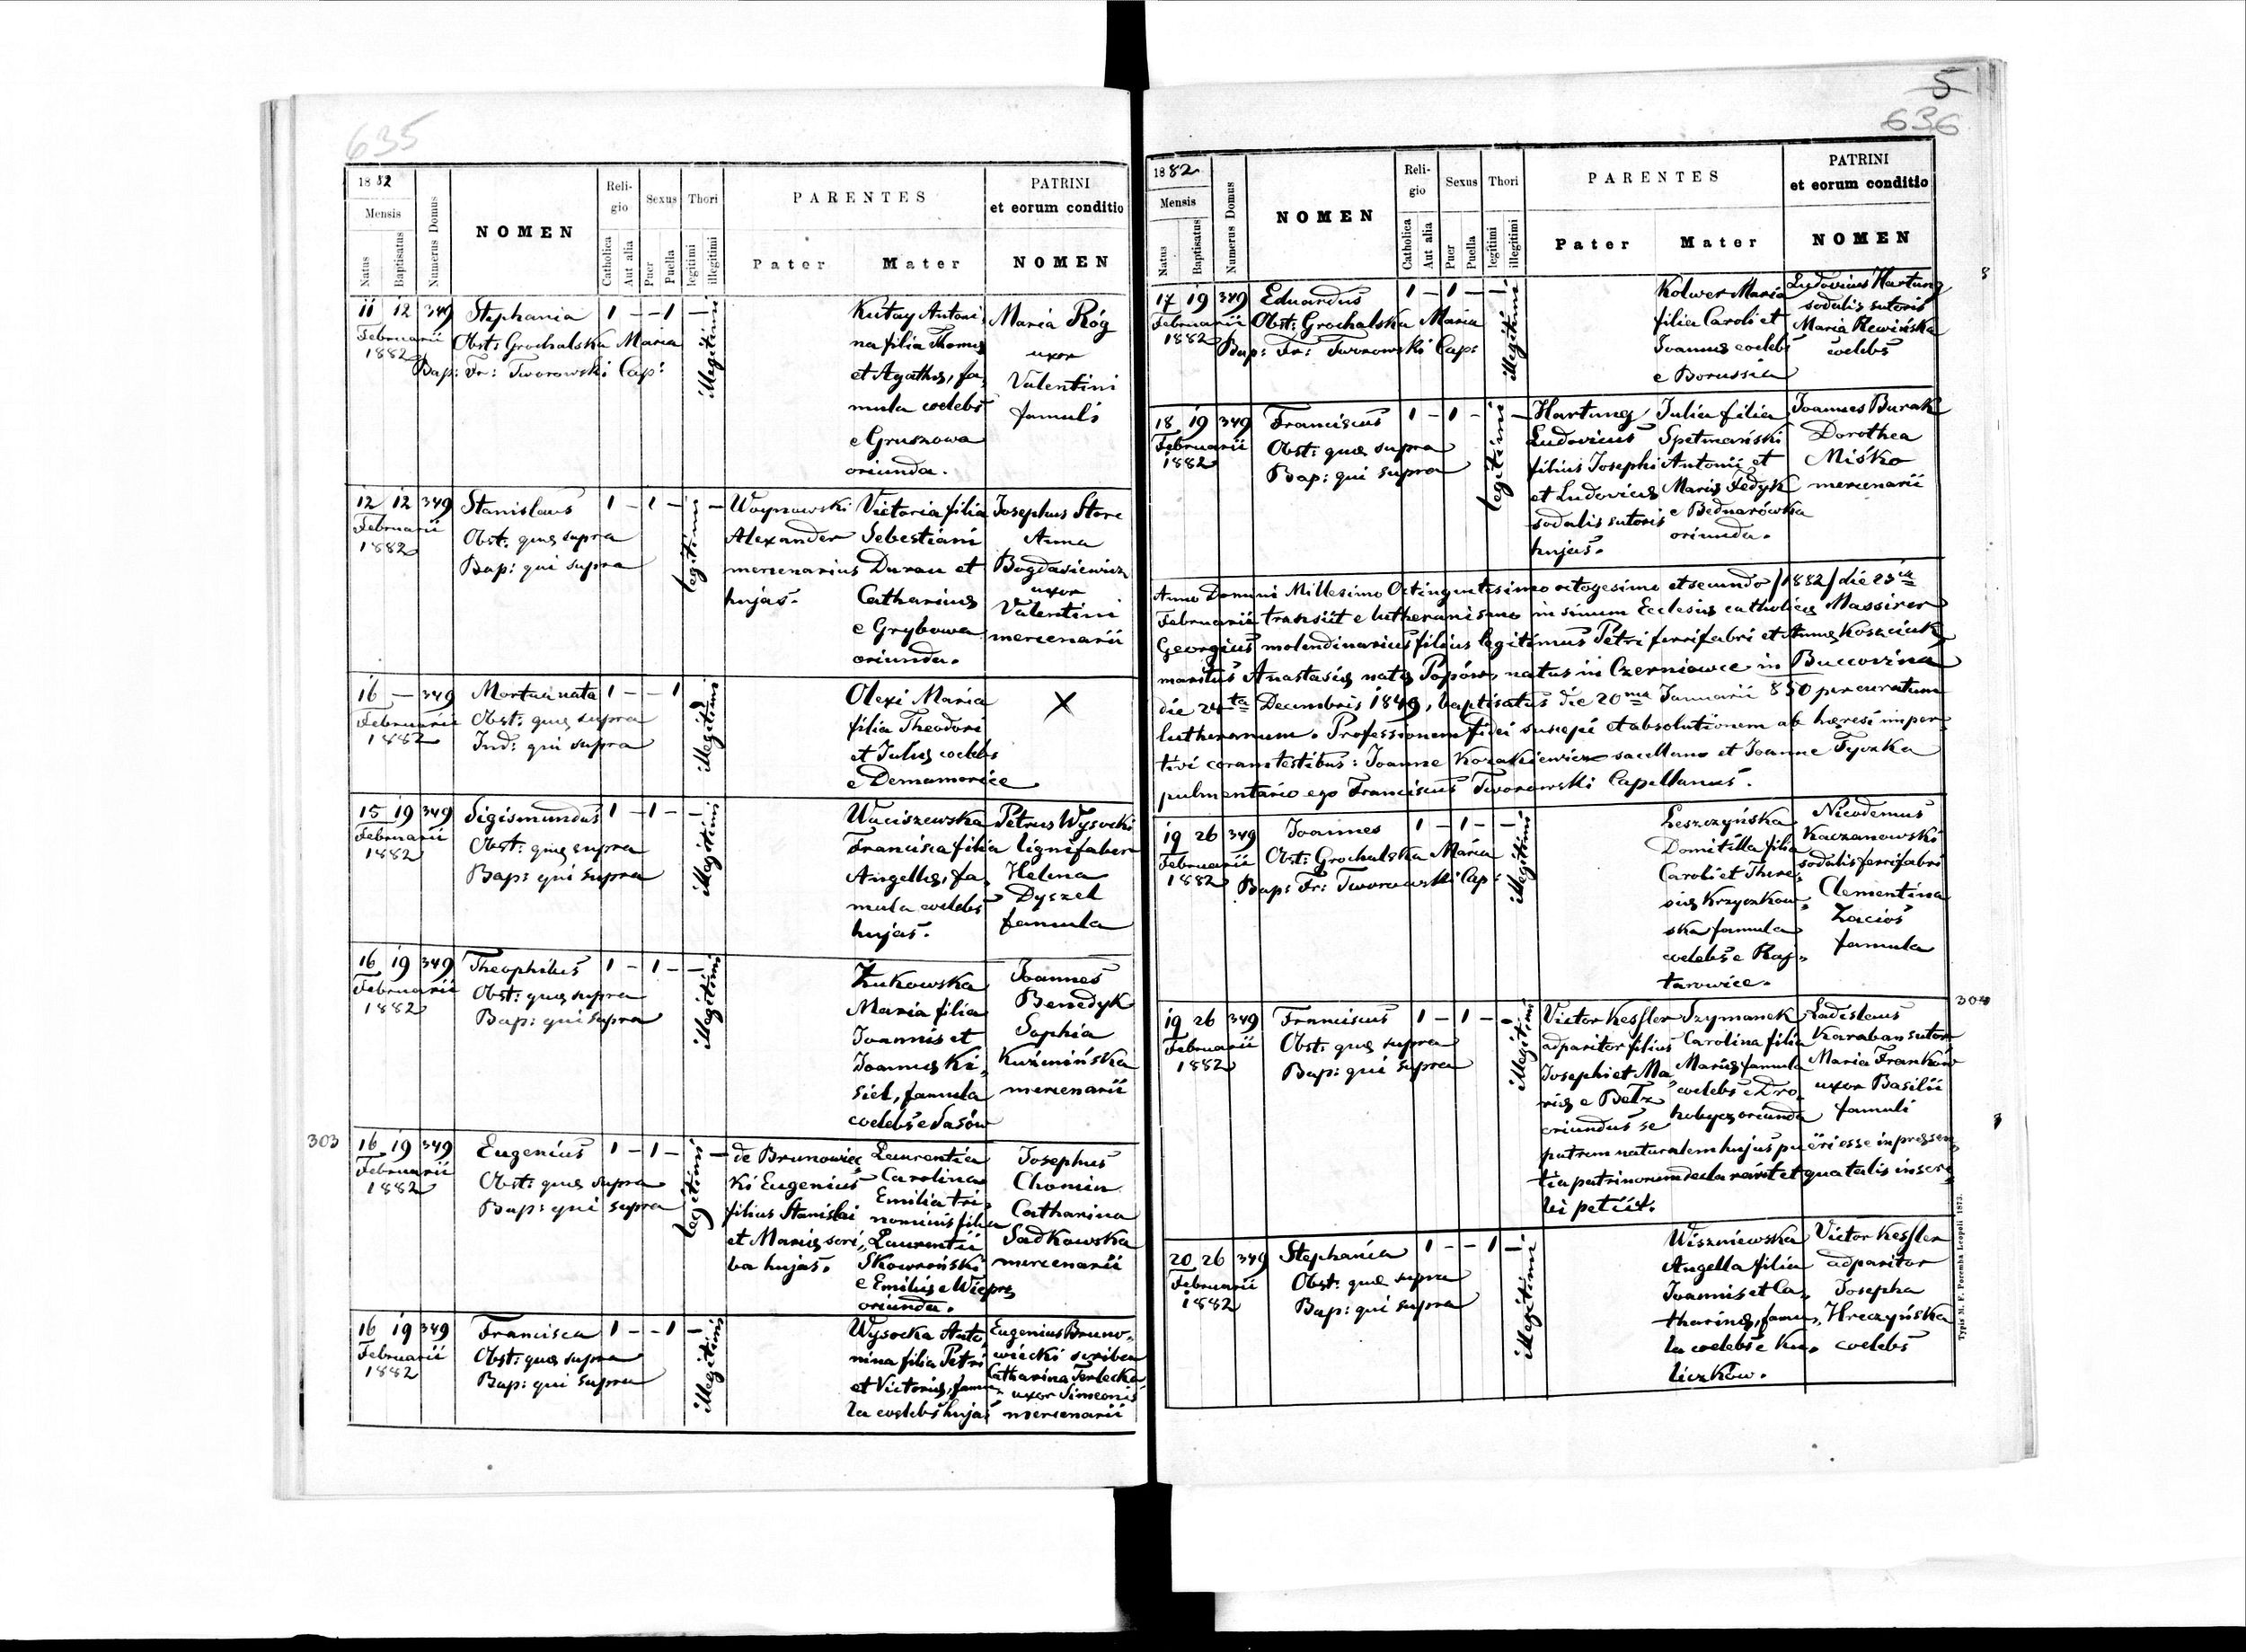 635
1882
Mensis
Natus
Baptisatus
Numerus Domus
NOMEN
Religio
Catholica
Aut alia
Sexus
Puer
Puella
Thori
legitimi
illegitimi
PARENTES
Pater
Mater
PATRINI
et eorum conditio
NOMEN
11 12 349 Stephania 1 – – 1 –
Februarii
1882
Obst: Grochalska Maria
Bap: Fr: Tworowski Cap:
illegitimi
Kutay Antoni
na filia Thomæ
et Agathæ, fa,
mula coelebs
e Gruszowa
oriunda.
Maria Róg
uxor
Valentini
famuli
12 12 349 Stanislaus 1 – 1 – –
Februarii
1882
Obst: quæ supra
Bap: qui supra
legitimi
Woynowski
Alexander
mercenarius
hujas.
Victoria filia
Sebestiani
Duran et
Catharinæ
e Grybowa
oriunda.
Josephus Store
Anna
Bogdasiewicz
uxor
Valentini
mercenarii
16 – 349 Mortua nata 1 – – 1
Februarii
1882
Obst: quæ supra
Ind: qui supra
illegitimi
Olexi Maria
filia Theodori
et Juliæ coelebs
e Demamorice
X
15 19 349 Sigismundus 1 – 1 – –
Februarii
1882
Obst: quæ supra
Bap: qui supra
illegitimi
Francisca filia
Angellæ, fa,
mula coelebs
hujas.
Petrus Wysocki
lignifaber
Helena
Dyszel
famula
16 19 349 Theophilus 1 – 1 – –
Februarii
1882
Obst: quæ supra
Bap: qui supra
illegitimi
Żukowska
Maria filia
Joannis et
Joannæ Ki,
siel, famula
coelebs e Sasów
Joannes
Benedyk
Sophia
Kuźmińska
mercenarii
303
16 19 349 Eugenius 1 – 1 – –
Februarii
1882
Obst: quæ supra
Bap: qui supra
legitimi
de Brunowiec
ki Eugenius
filius Stanislai
et Mariæ scri,
ba hujas.
Laurentia
Carolina
Emilia tri,
nominis filia
Laurentii
Skowroński
e Emiliæ e Wieprz
oriunda.
Josephus
Chomin
Catharina
Sadkowska
mercenarii
16 19 349 Francisca 1 – – 1 –
Februarii
1882
Obst: quæ supra
Bap: qui supra
illegitimi
Wysocka Anto
nina filia Petri
et Victoriæ, famu,
la coelebs hujas
Eugenius Bruno,
wiecki scriba
Catharina Terlecka
uxor Simeonis
mercenarii
5
636
1882
Mensis
Natus
Baptisatus
Numerus Domus
NOMEN
Religio
Catholica
Aut alia
Sexus
Puer
Puella
Thori
legitimi
illegitimi
PARENTES
Pater
Mater
PATRINI
et eorum conditio
NOMEN
17 19 349 Eduardus 1 – 1 – –
Februarii
1882
Obst: Grochalska Maria
Bap: Fr: Tworowski Cap:
illegitimi
Kolwer Maria
filia Caroli et
Joannæ coelebs
e Borussia
Ludovicus Hartung
sodalis sutoris
Maria Rewińska
coelebs
18 19 349 Franciscus 1 – 1 – –
Februarii
1882
Obst: quæ supra
Bap: qui supra
legitimi
Hartung
Ludovicus
filius Josephi
et Ludovicæ
sodalis sutoris
hujas.
Julia filia
Spetmański
Antonii et
Mariæ Fedyk
e Bednarówka
oriunda.
Joannes Burak
Dorothea
Miśko
mercenarii
Anno Domini Millesimo Octingentesimo octogesimo et secundo /1882/ die 23
Februarii transiit e lutheranismo in sinum Ecclesiæ catholicæ Massirer
Georgius molendinarius filius legitimus Petri ferrifabri et Annæ Kosaciuk
maritus Anastasiæ natæ Popów, natus in Czerniowce in Buccovina
die 24ta Decembris 1849, baptisatus die 20ma Januarii 850 per curatum
lutheranum. Professionem fidei suscepi et absolutionem ab hæresi imper,
tivi coram testibus: Joanne Kozakiewicz sacellano et Joanne Tyczka
pulmentario ego Franciscus Tworowski Capellanus.
19 26 349 Joannes 1 – 1 – –
Februarii
1882
Obst: Grochalska Maria
Bap: Fr: Tworowski Cap:
illegitimi
Leszczyńska
Domitilla filia
Caroli et There,
siæ Krzyczkow,
ska famula
coelebs e Raj,
tarowice.
Nicodemus
Kaczanowski
sodalis ferrifabri
Clementina
Zacios
famula
304
19 26 349 Franciscus 1 – 1 – –
Februarii
1882
Obst: quæ supra
Bap: qui supra
illegitimi
Victor Kessler
adparitor filius
Josephi et Ma
riæ e Betz
oriundus se
Szymanek
Carolina filia
Mariæ famula
coelebs e Dro,
hobycz oriunda
patrem naturalem hujus pueri esse in pressen,
tia patrinorum declaravit et qua talis inscri,
bi petiit.
Ladislaus
Karaban sutor
Maria Franków
uxor Basilii
famuli
20 26 349 Stephania 1 – – 1 –
Februarii
1882
Obst: quæ supra
Bap: qui supra
illegitimi
Wiszniewska
Angella filia
Joannis et Ca,
tharinæ, famu,
la coelebs e Ku,
liczków.
Victor Kessler
adparitor
Josepha
Hreczyńska
coelebs
Typis M. F. Poremba Leopoli 1873.